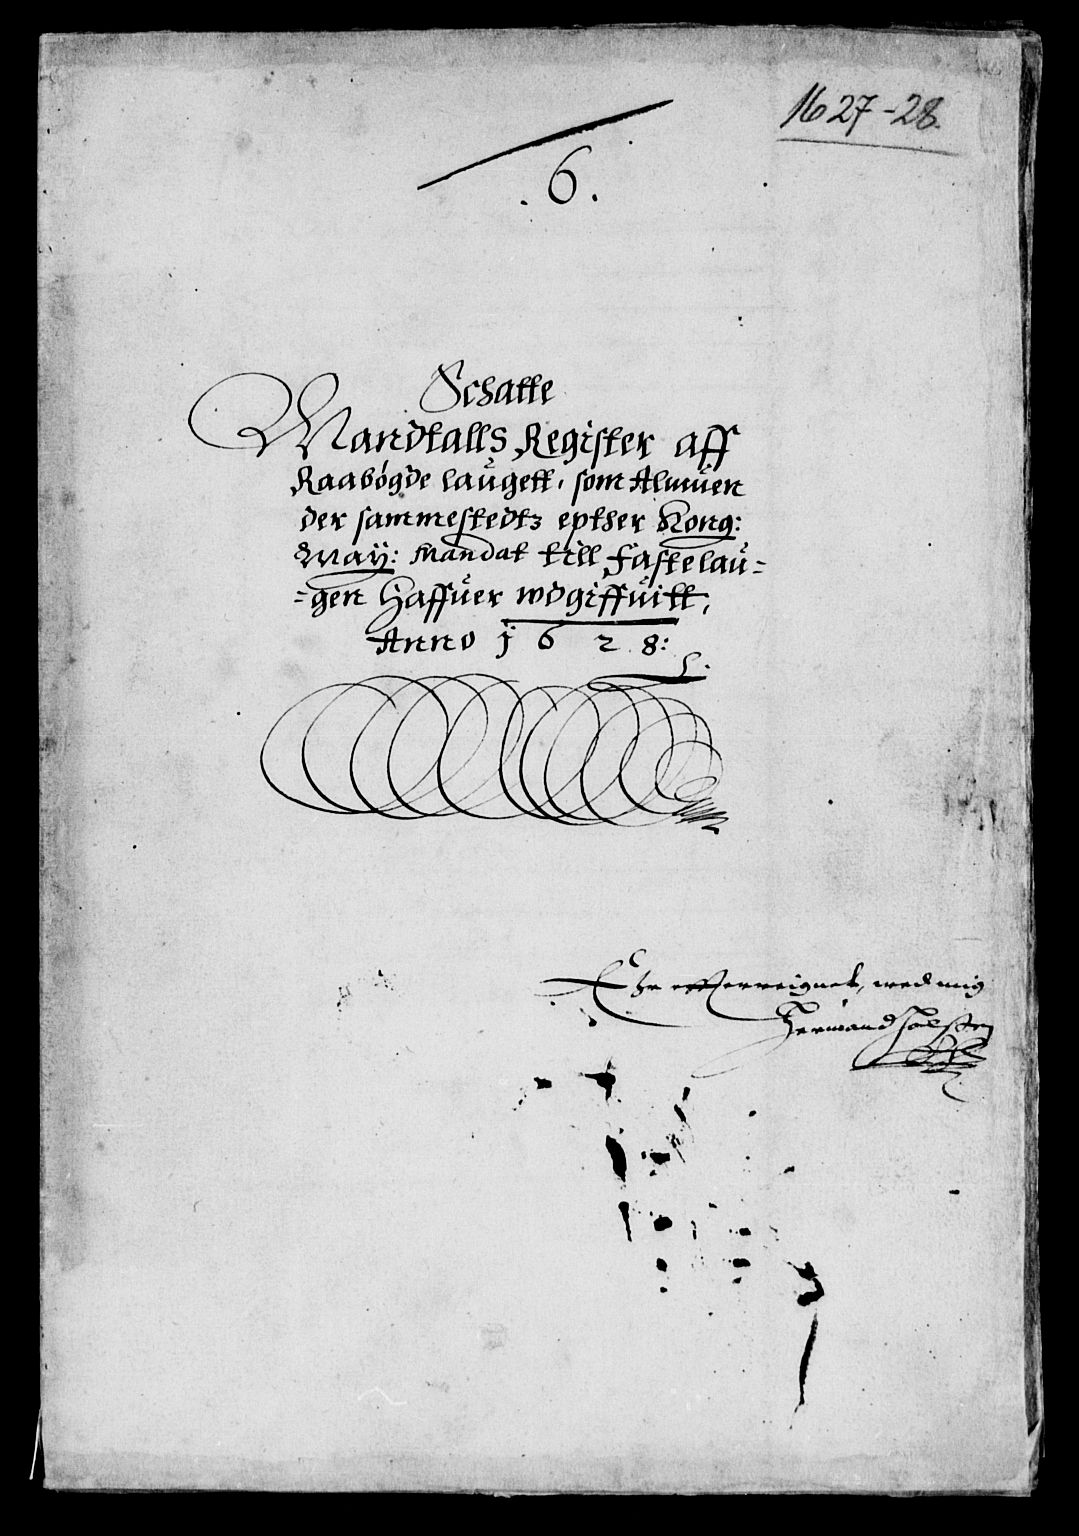 1627-28.
.6.
Schatte
Mandtalls Register aff
Raabøgde laŭgett, som Almŭen
der sammestedtz epther Kong:
May: Mandat till Fastelaŭ=
=gen Haffŭer wdgiffŭitt,
Anno 1628:
erreignet, med mig
Hermand Holsten